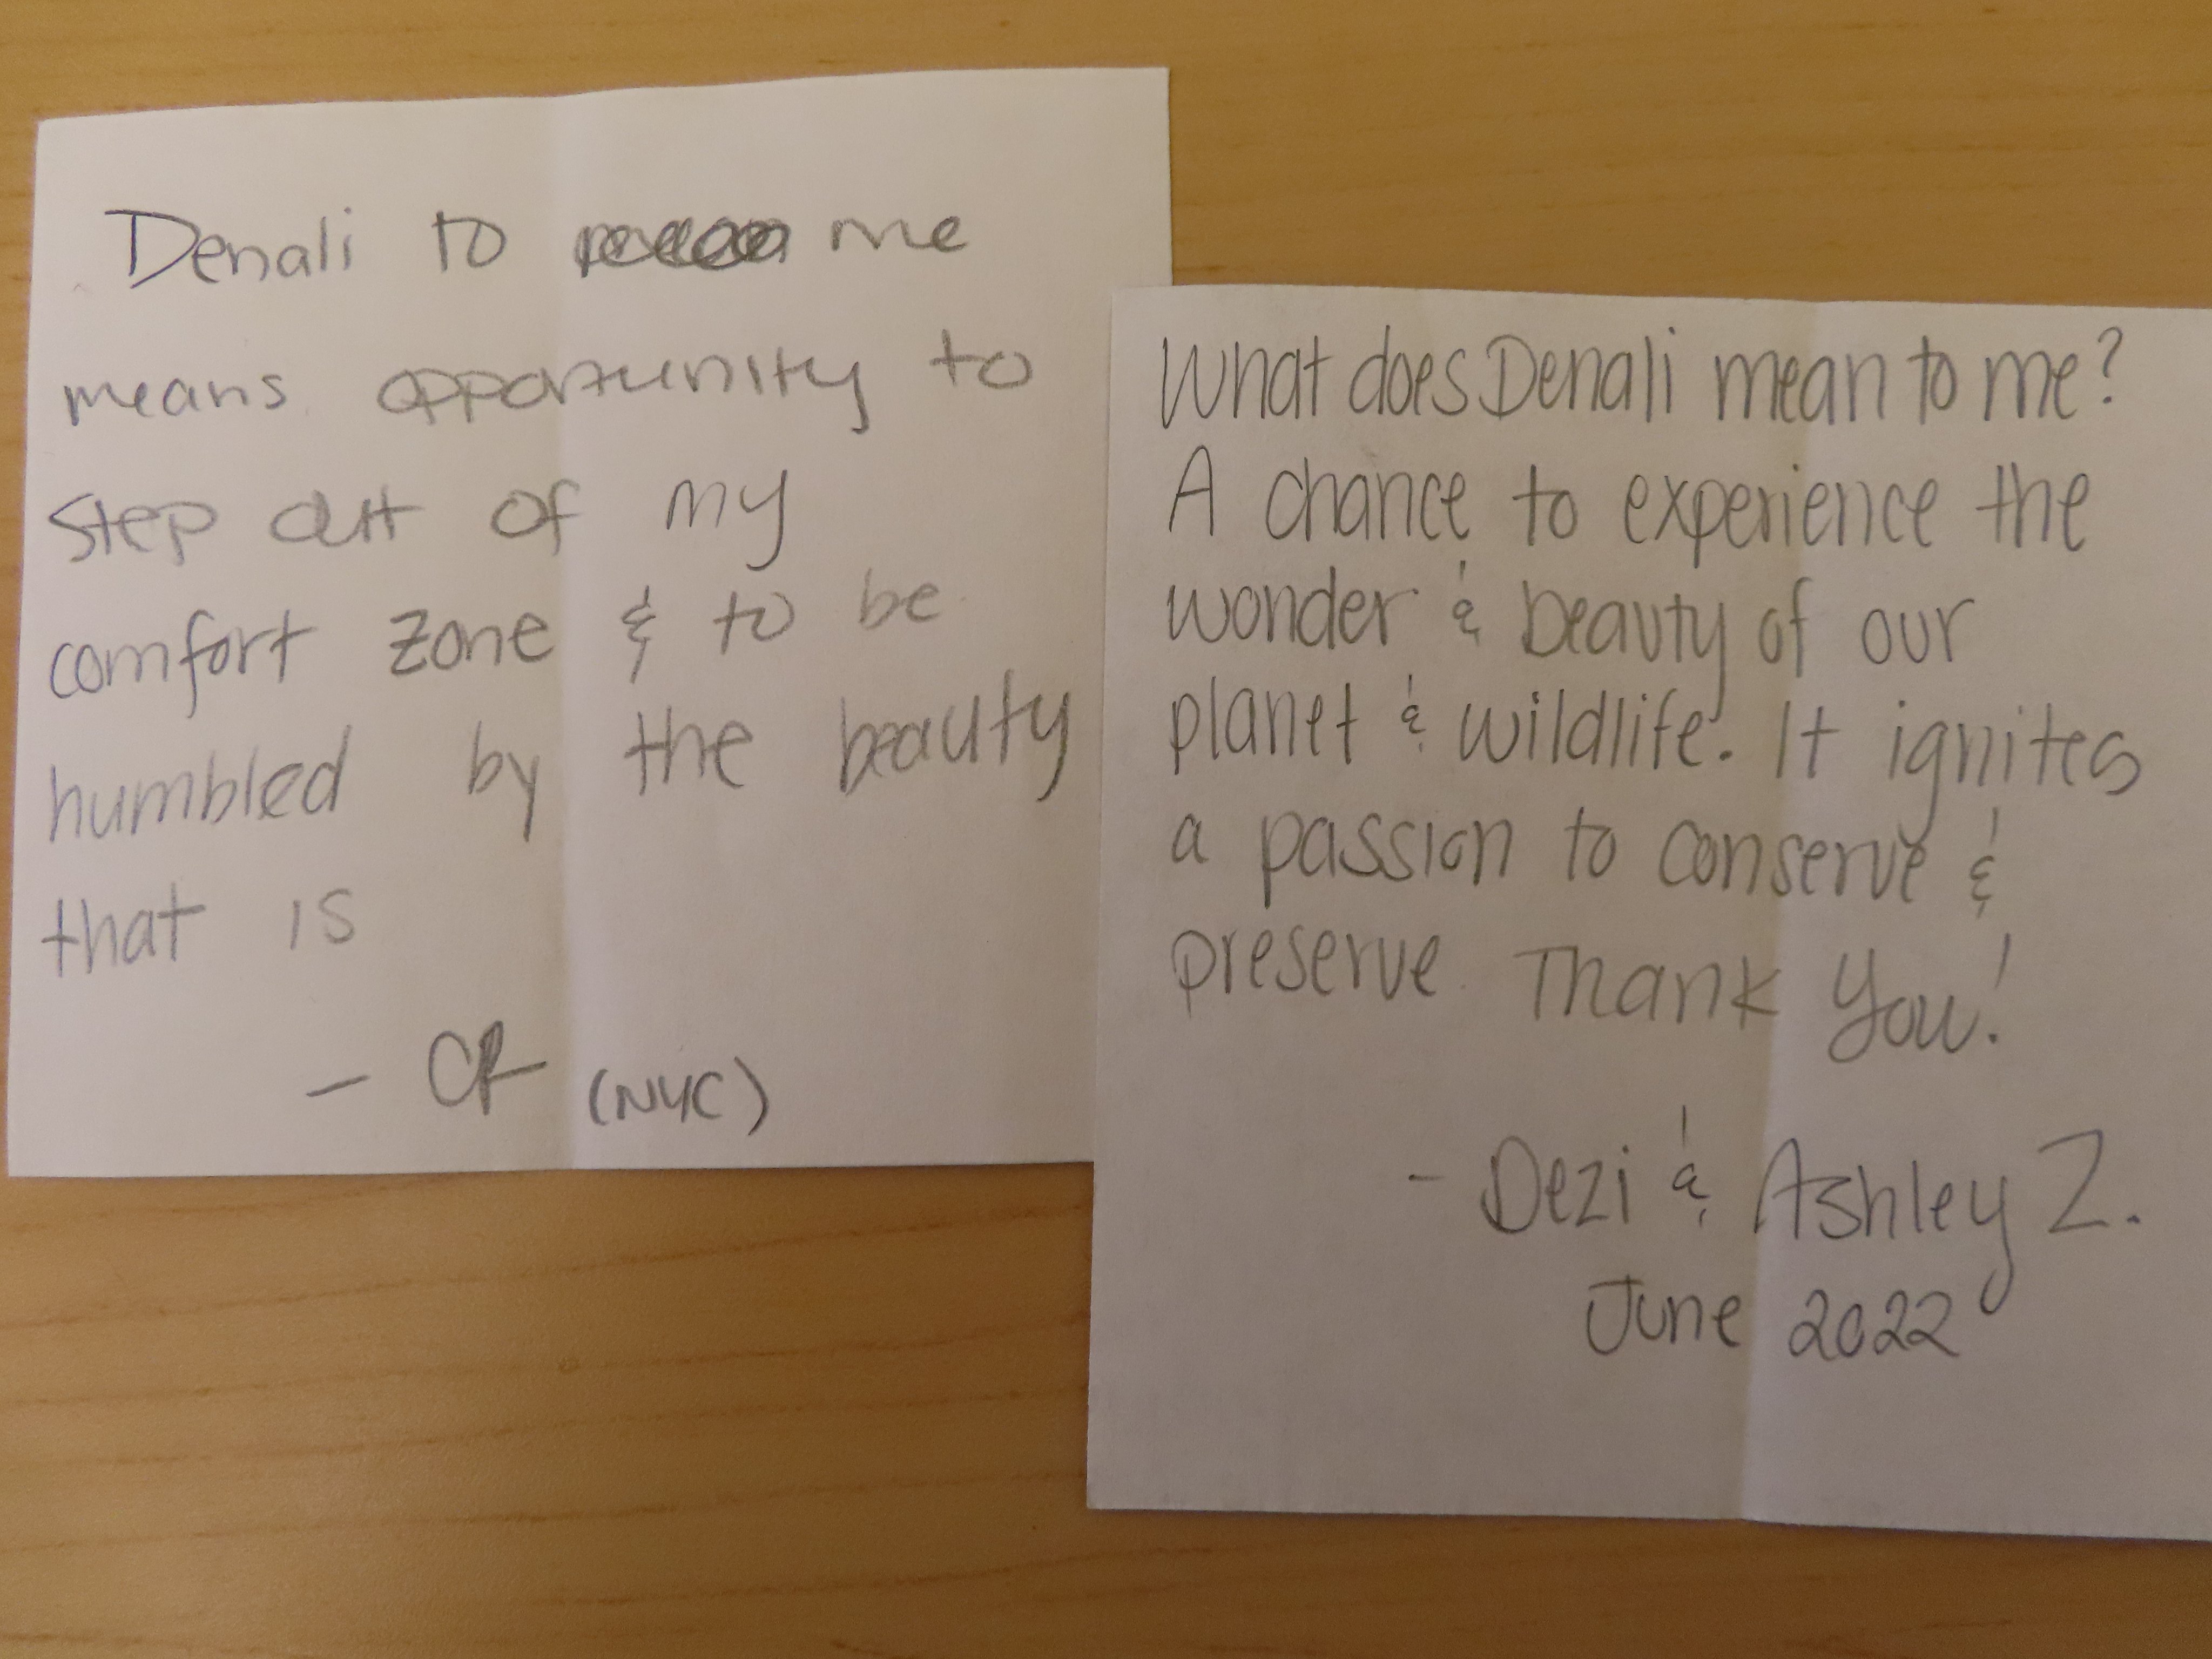 Denali to me
means opportunity to
step out of my
comfort zone & to be
humbled by the beauty
that is
- CR (NYC)
What does Denali mean to me?
A chance to experience the
wonder & beauty of our
planet & wildlife. It ignites
a passion to conserve &
preserve. Thank You!
- Dezi & Ashley Z.
June 2022